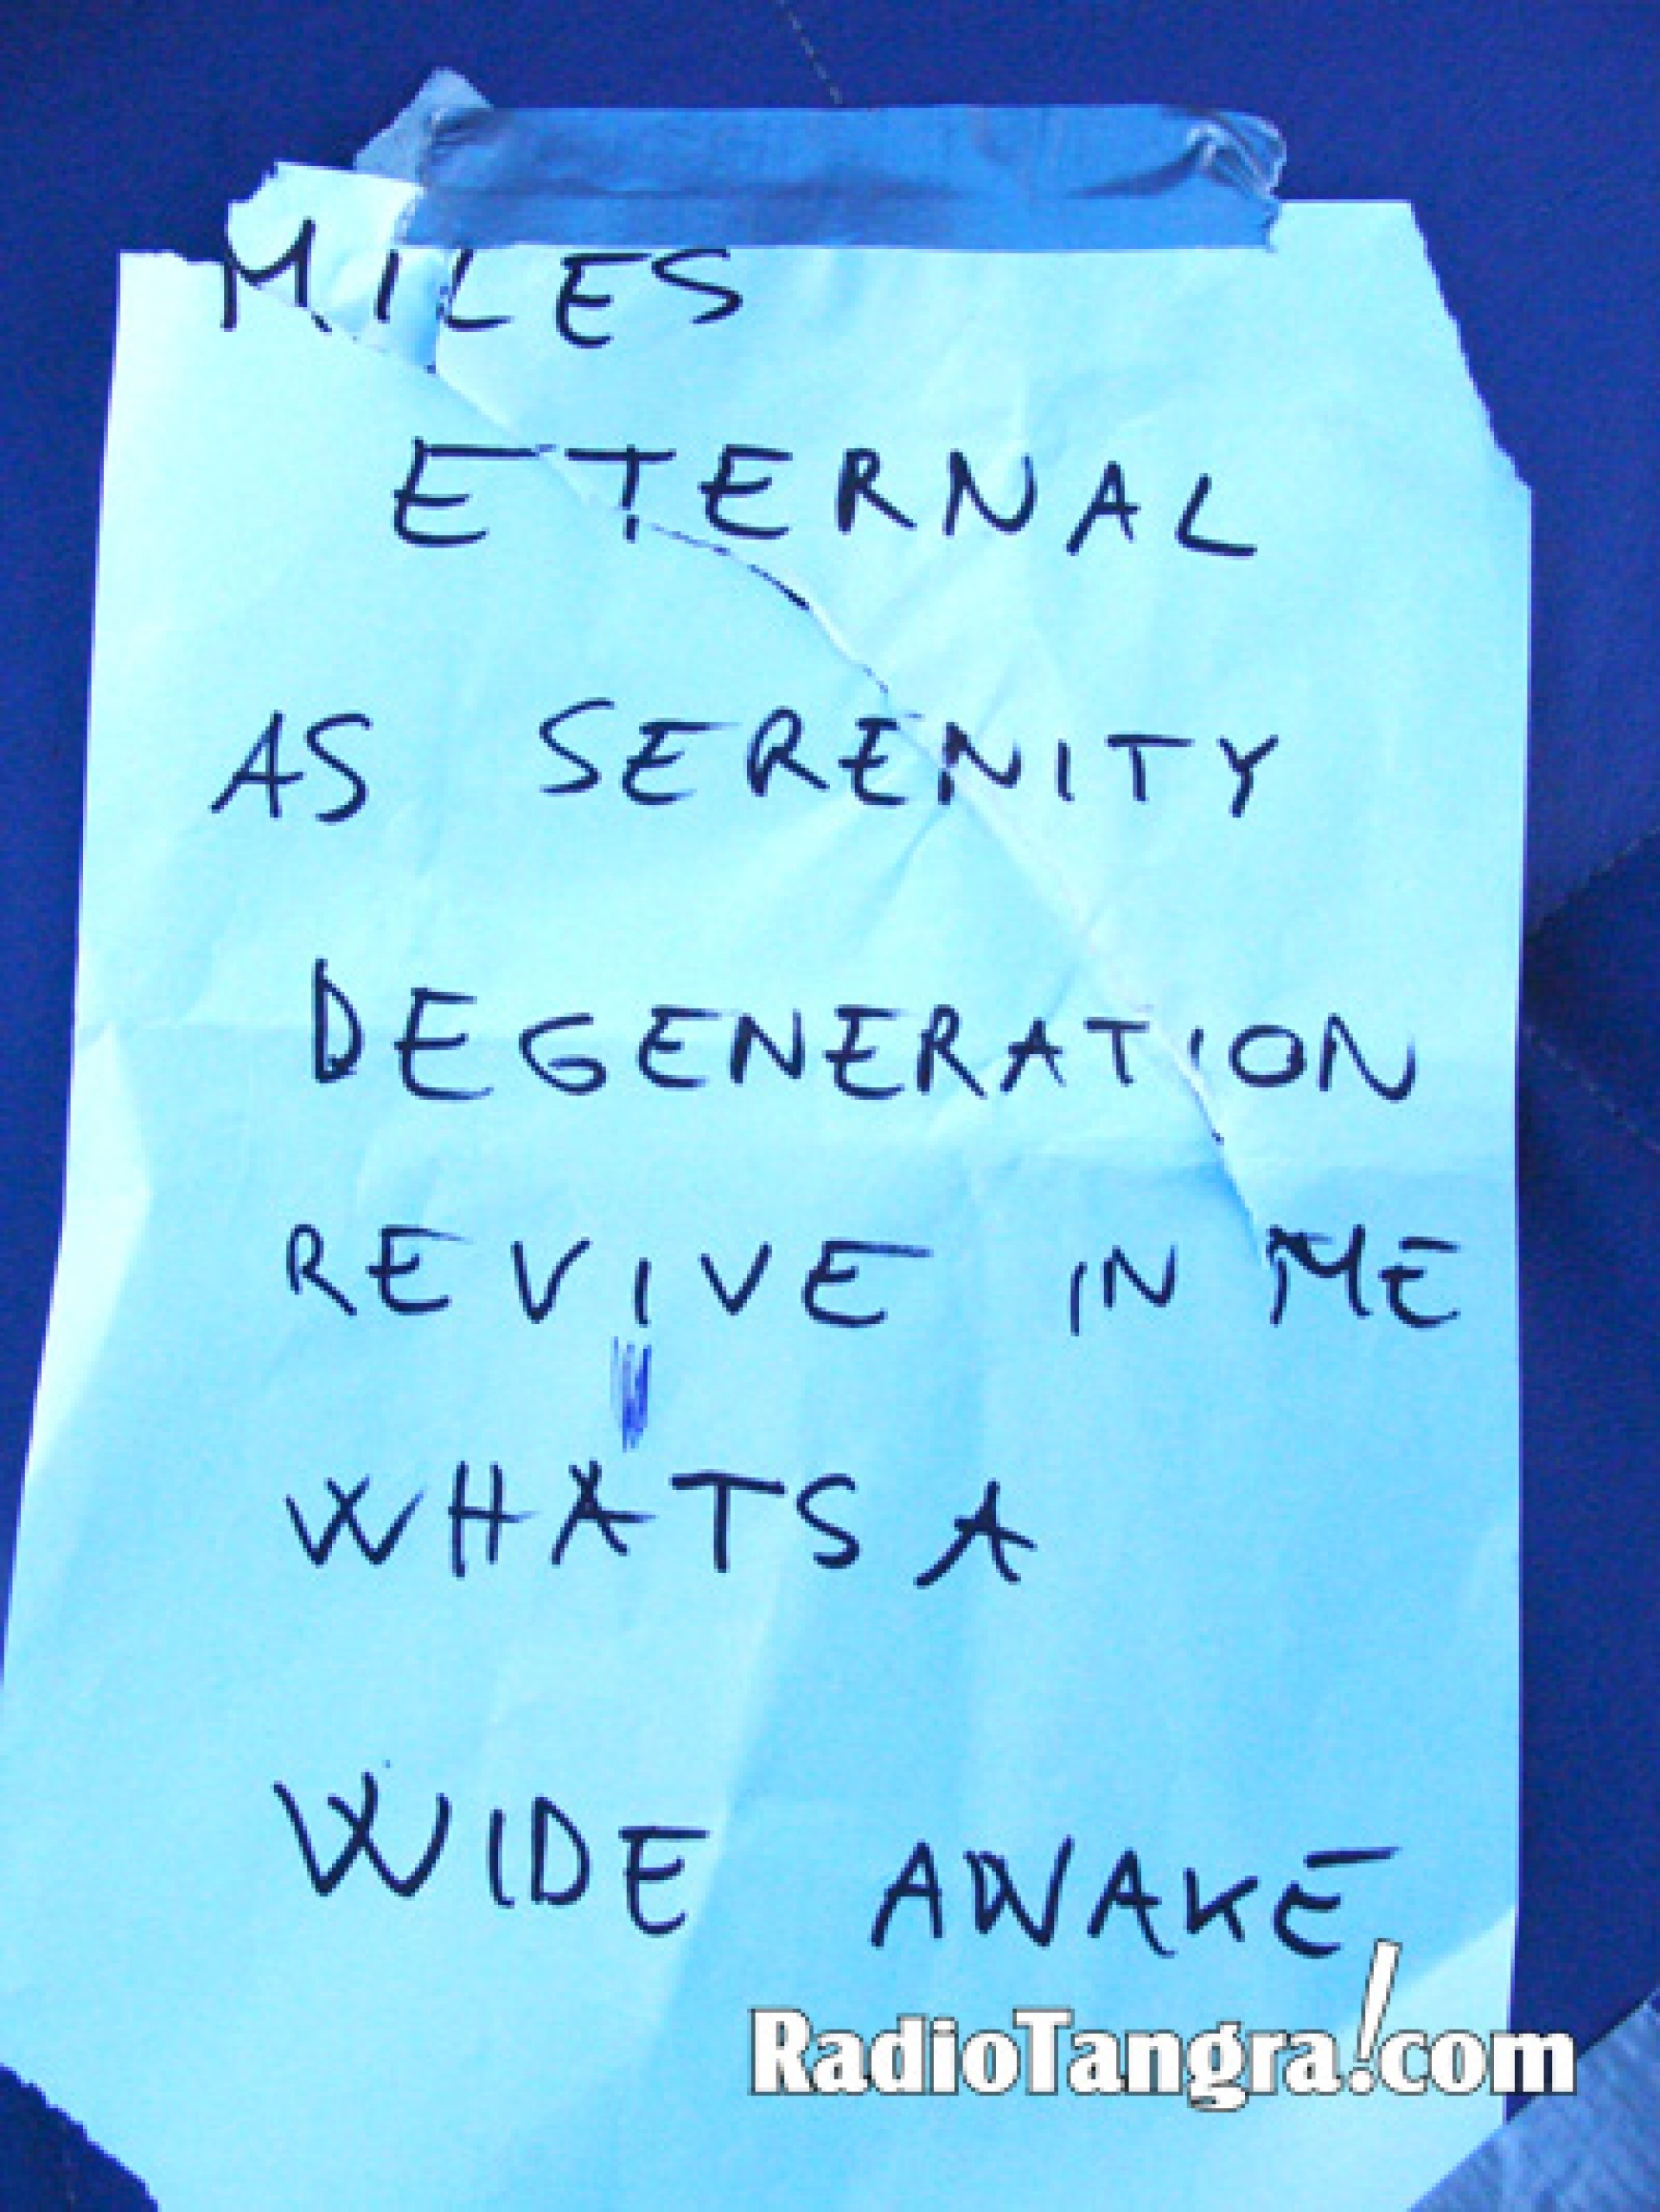 MILES
ETERNAL
AS SERENITY
DEGENERATION
REVIVE IN ME
WHATS A
WIDE AWAKE
RadioTangra!com